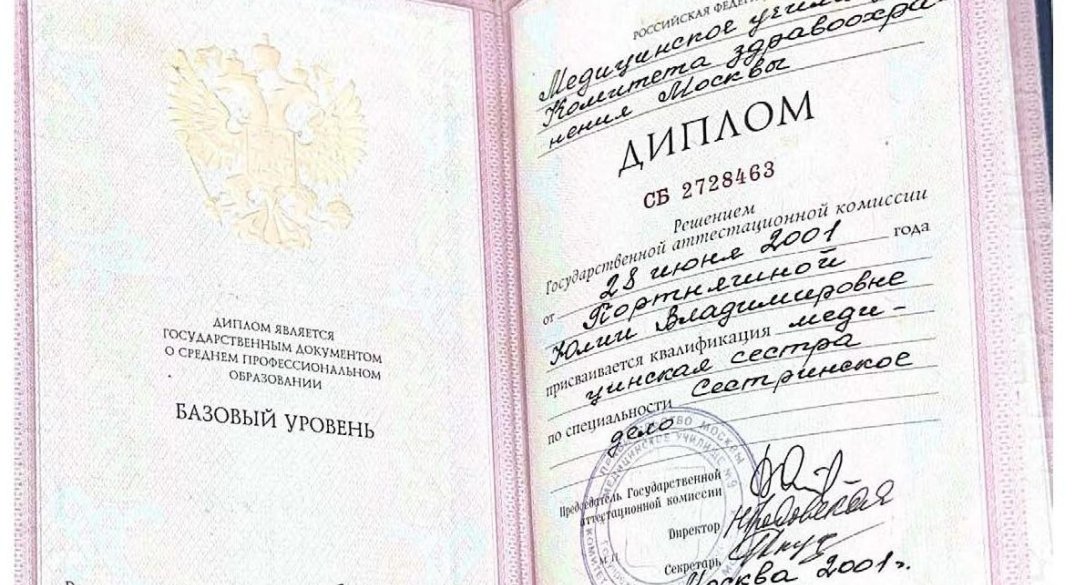 ДИПЛОМ ЯВЛЯЕТСЯ
ГОСУДАРСТВЕННЫМ ДОКУМЕНТОМ
О СРЕДНЕМ ПРОФЕССИОНАЛЬНОМ
ОБРАЗОВАНИИ
БАЗОВЫЙ УРОВЕНЬ
РОССИЙСКАЯ
Медицинское
Комитета здравоохра-
нения Москвы
ДИПЛОМ
СБ 2728463
Решением
Государственной аттестационной комиссии
от 28 июня 2001 года
Портнягиной
Юлии Владимировне
присваивается квалификация меди-
цинская сестра
по специальности Сестринское
дело
Председатель Государственной
аттестационной комиссии
Директор
Секретарь
М.П.
Москва 2001г.
МЕДИЦИНСКОЕ УЧИЛИЩЕ №9